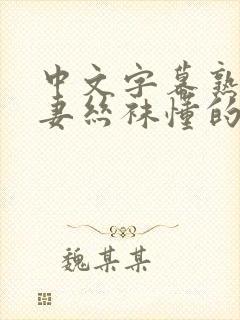 中文字幕熟
妻丝袜懂的
魏某某